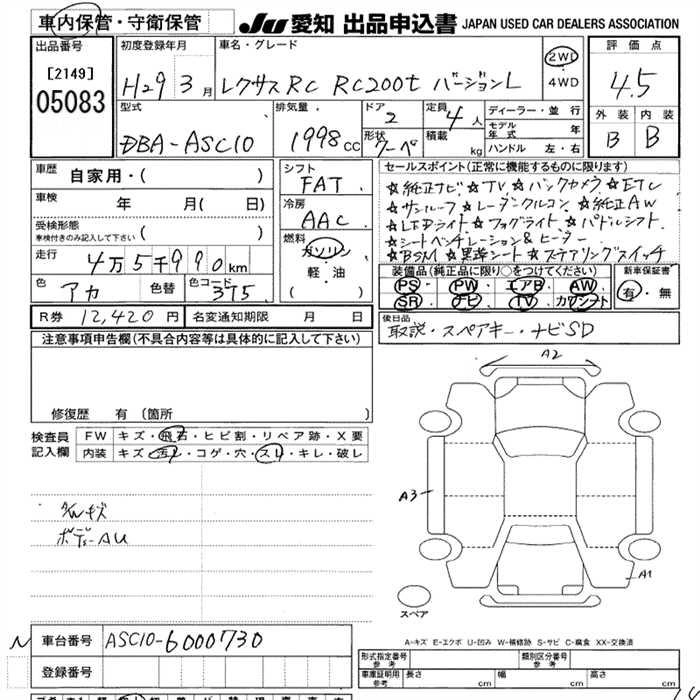 車内保管・守衛保管
JU 愛知 出品申込書 JAPAN USED CAR DEALERS ASSOCIATION
出品番号
[2149]
05083
初度登録年月
H29 3月
車名・グレード
レクサスRC RC200t バージョンL
2WD
・
4WD
評価点
4.5
外装 内装
B B
型式
DBA-ASC10
排気量
1998cc
ドア
2
形状
クーペ
定員
4人
積載
kg
ディーラー・並行
モデル年式 年
ハンドル 左・右
車歴
自家用・( )
車検 年 月( 日)
受検形態
車検付きのみ記入して下さい ( )
走行
4万5千990km
色
アカ
色替
色コード
3T5
シフト
FAT
冷房
AAC
燃料
ガソリン
軽・油
( )
セールスポイント(正常に機能するものに限ります)
☆純正ナビ ☆TV ☆バックカメラ ☆ETC
☆サンルーフ ☆レーダークルコン ☆純正AW
☆LEDライト ☆フォグライト ☆パドルシフト
☆シートベンチレーション&ヒーター
☆BSM ☆黒革シート ☆ステアリングスイッチ
装備品(純正品に限り○をつけてください)
PS・PW・エアB・AW
SR・ナビ・TV・カワシート
新車保証書
有・無
R券 12,420円
名変通知期限 月 日
後日品
取説・スペアキー・ナビSD
注意事項申告欄(不具合内容等は具体的に記入して下さい)
修復歴 有(箇所 )
検査員
記入欄
FW キズ・飛石・ヒビ割・リペア跡・X要
内装 キズ・汚レ・コゲ・穴・スレ・キレ・破レ
ダッシュキズ
ボデーAU
A2
A3
A1
スペア
A-キズ E-エクボ U-凹み W-補修跡 S-サビ C-腐食 XX-交換済
N
車台番号 ASC10-6000730
登録番号
形式指定番号
参考
類別区分番号
参考
車庫証明用
参考
長さ cm 幅 cm 高さ cm